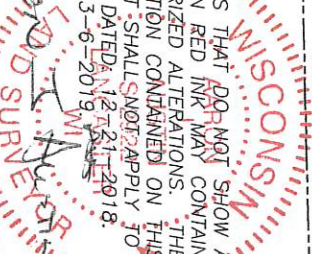 WISCONSIN
S THAT DO NOT SHOW A
N RED INK MAY CONTAIN
RIZED ALTERATIONS. THE
TION CONTAINED ON THIS
T SHALL NOT APPLY TO
DATED 12-21-2018.
3-6-2019
LAND SURVEYOR